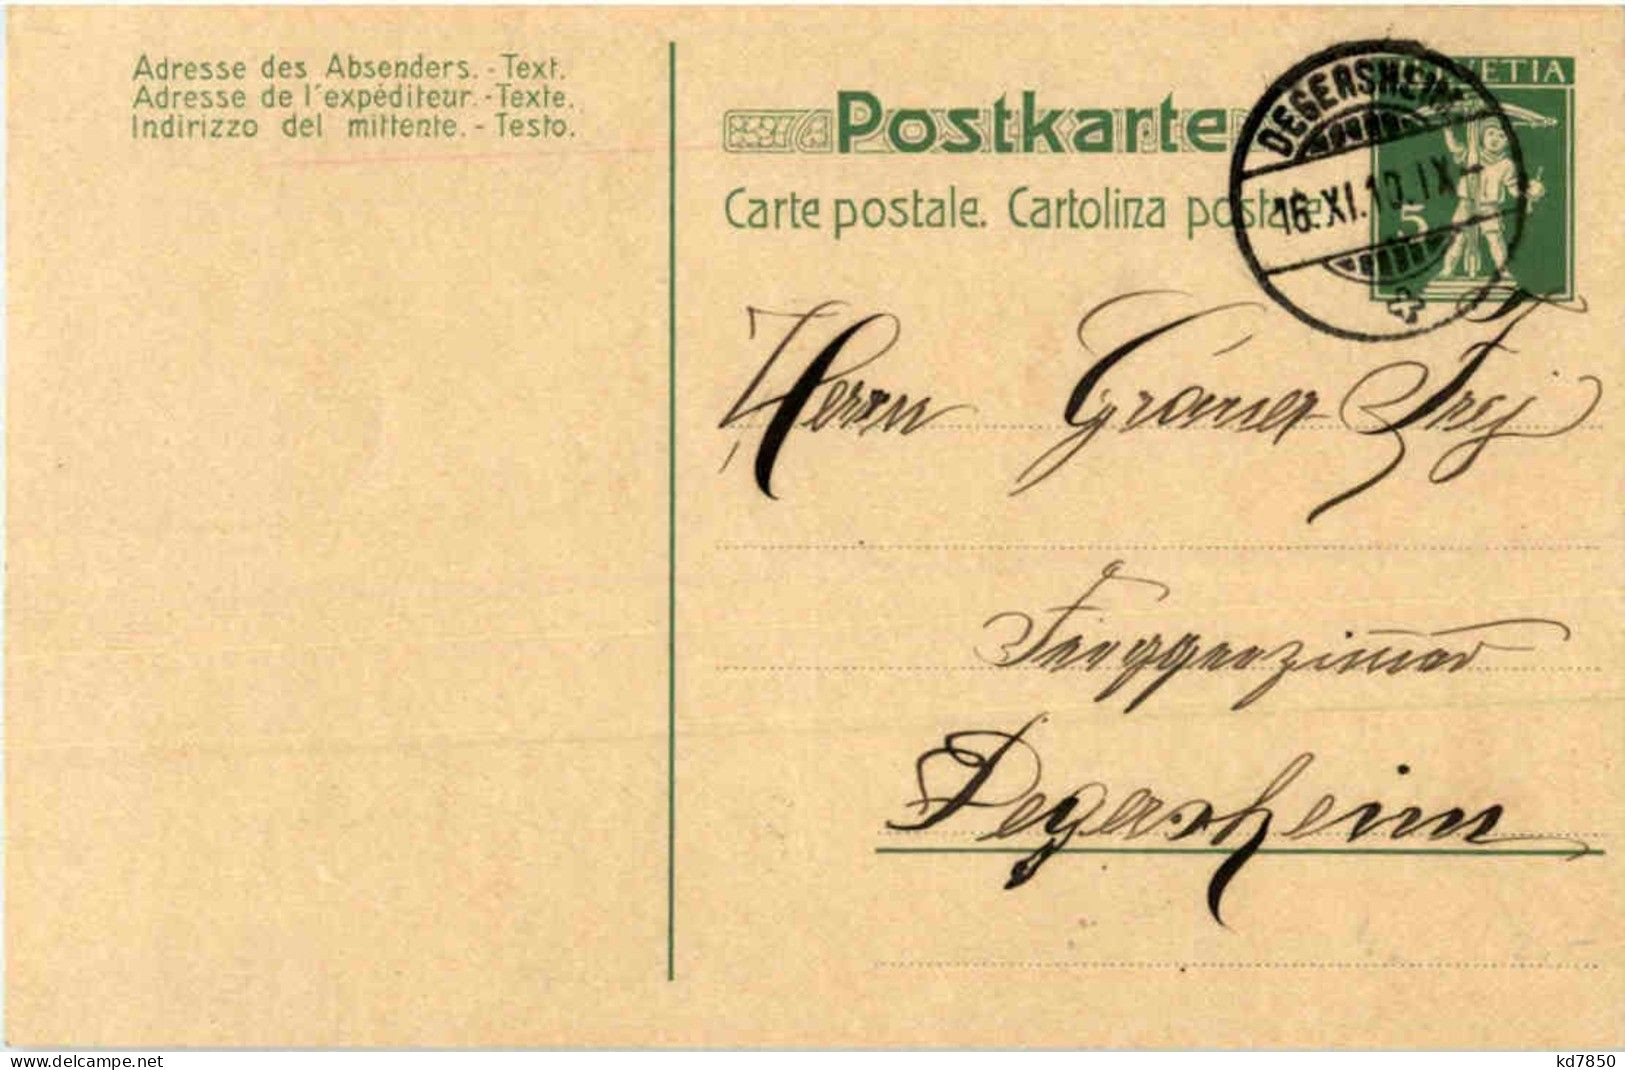 Adresse des Absenders. - Text.
Adresse de l'expéditeur. - Texte.
Indirizzo del mittente. - Testo.
Postkarte
Carte postale. Cartolina postale
HELVETIA
5
DEGERSHEIM
16. XI. 10. IX -
Herrn
Degersheim
delcampe.net
kd7850